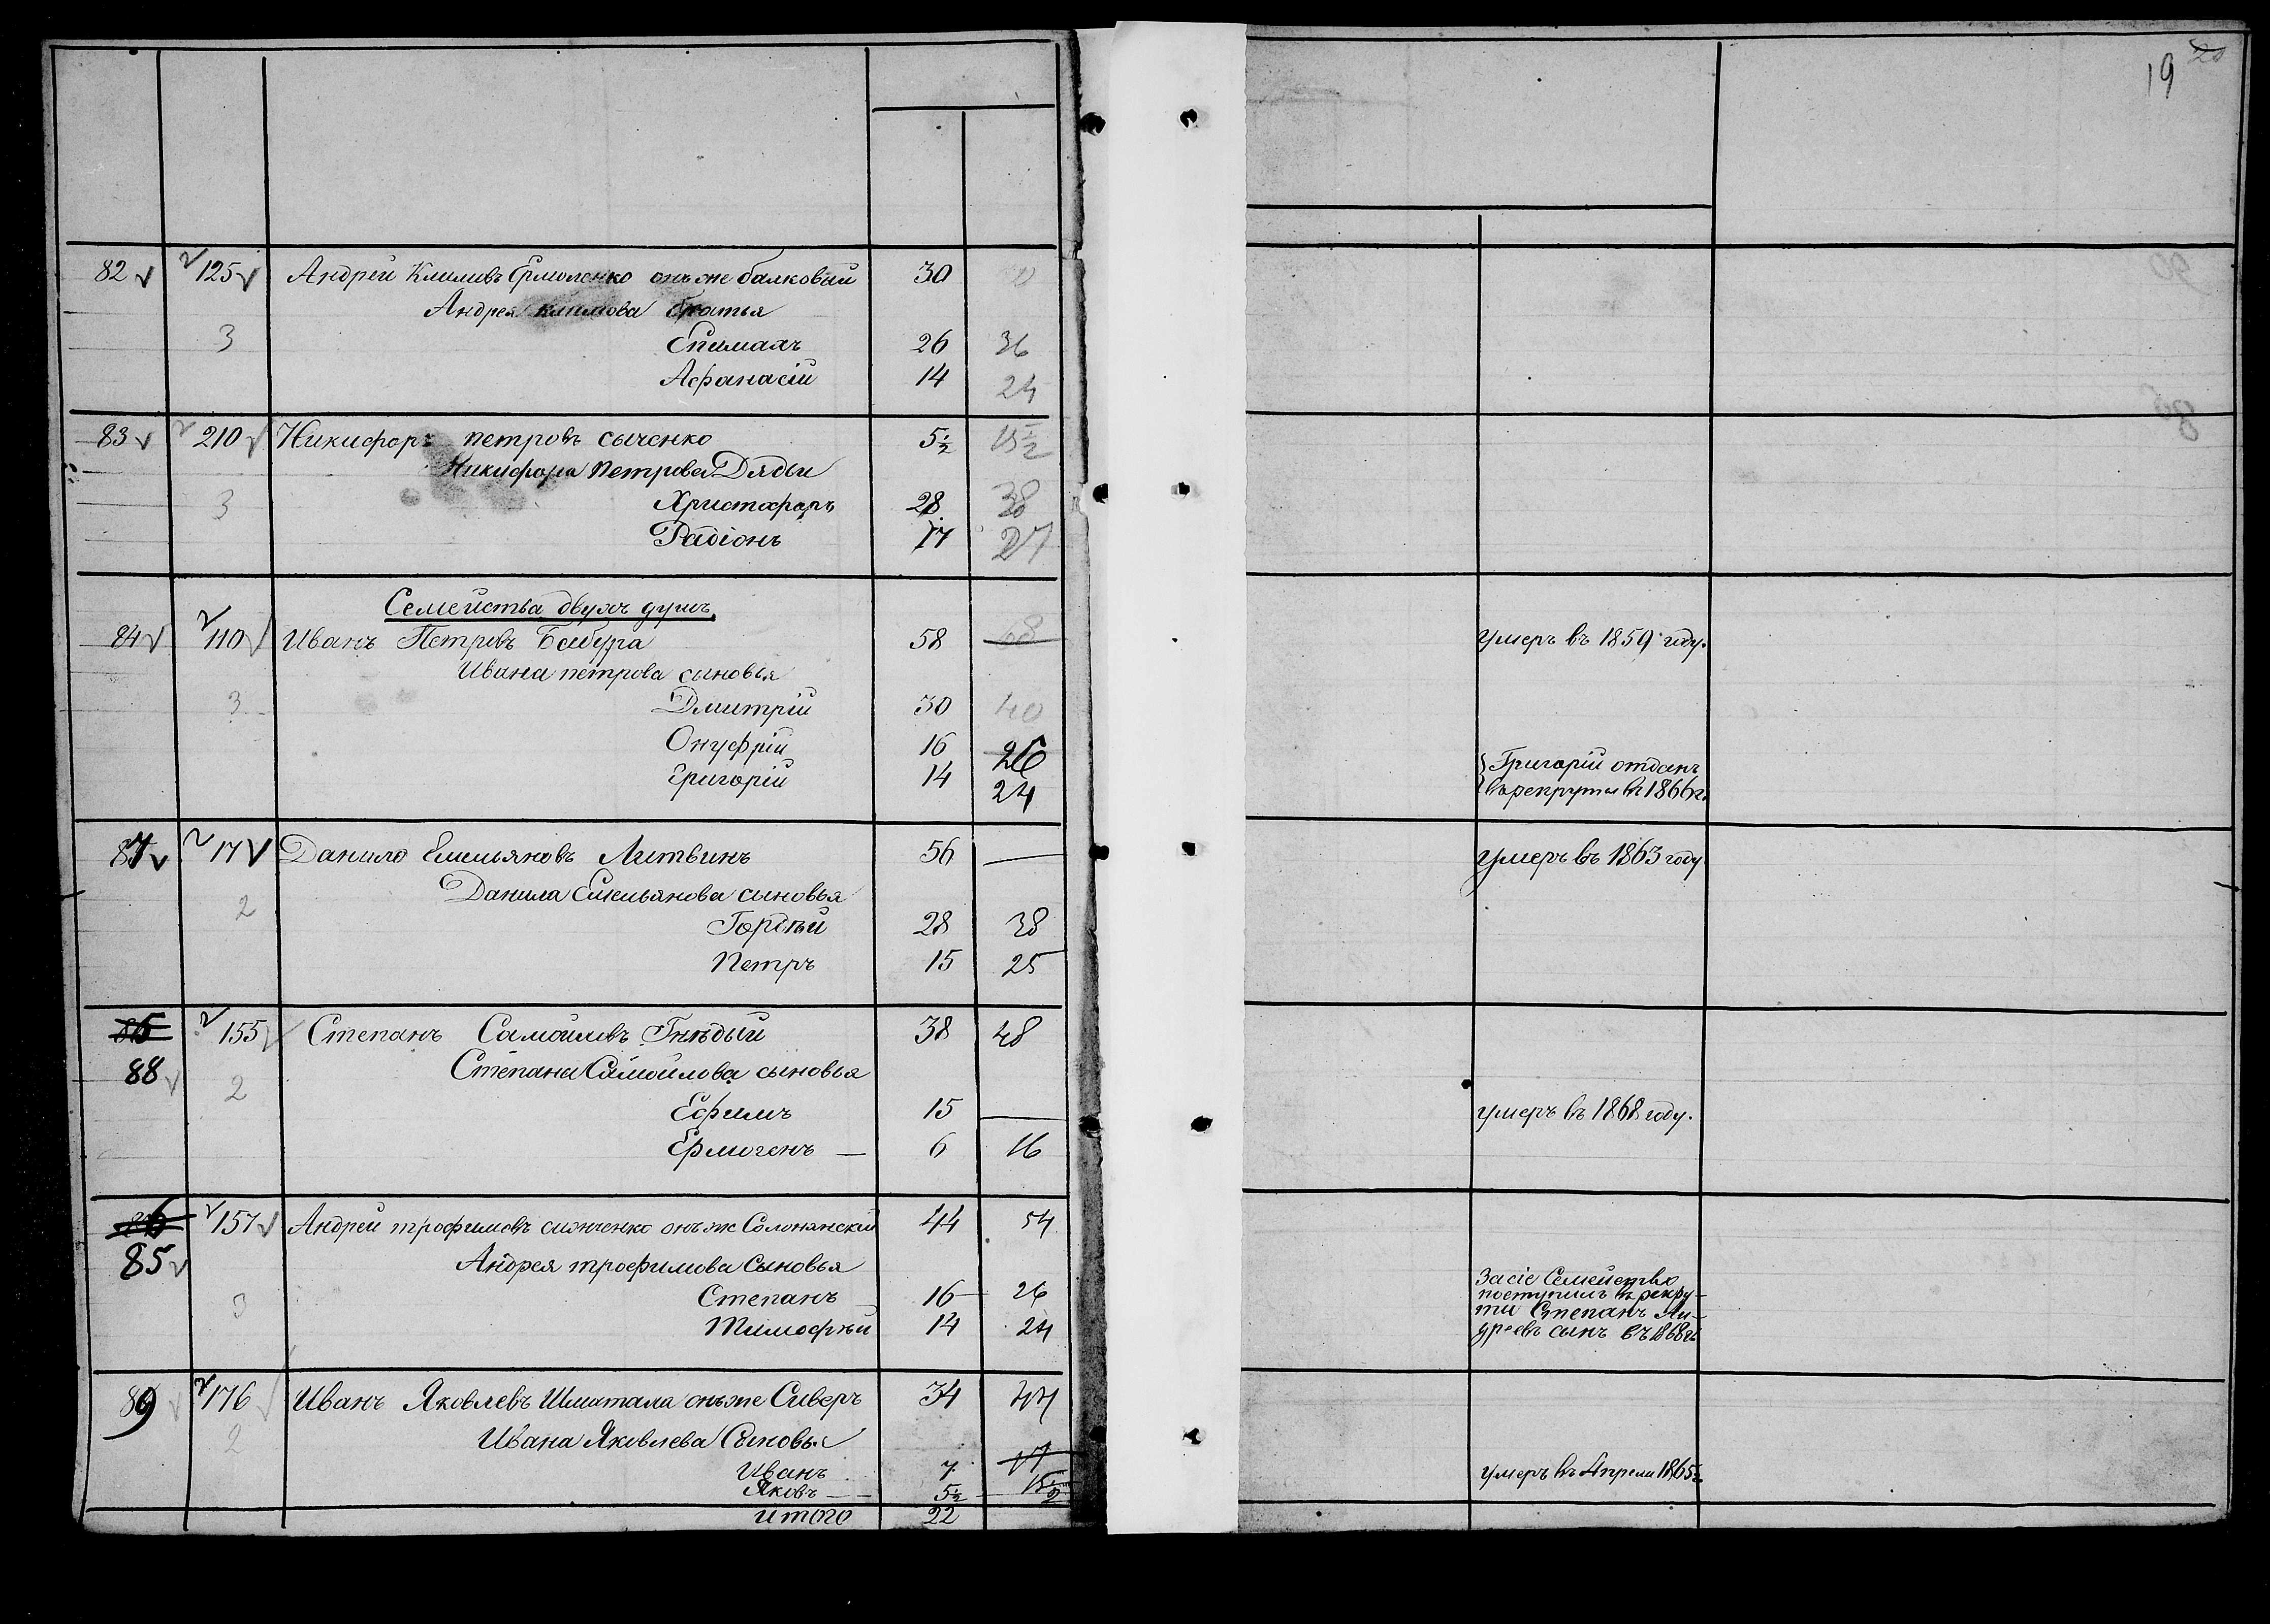 19 20
82 125 Андрей Климовъ Ермоленко онъ же балковый 30
Андрея Климова братья
3 Епимахъ 26 36
Афанасій 14 24
83 210 Никифоръ петровъ сыченко 5½ 15½
Никифора Петрова Дядьи
3 Христофоръ 28 38
Радіонъ 17 27
Семейства двухъ душъ
84 110 Иванъ Петровъ 58 68 умеръ въ 1859 году.
Ивана петрова сыновья
3 Дмитрій 30 40
Онуфрій 16 26
Григорій 14 24
Григорій отданъ
въ рекруты въ 1866 г.
87 17 Данило Емельяновъ Литвинъ 56 — умеръ въ 1863 году
Данила Емельянова сыновья
2 Гордѣй 28 38
Петръ 15 25
86 155 Степанъ Самойловъ Гнѣдый 38 48
88 Степана Самойлова сыновья
2 Ефимъ 15 — умеръ въ 1868 году.
Ермогенъ — 6 16
86 157 Андрей трофимовъ онъ же Солонянскій 44 54
85 Андрея трофимова Сыновья
3 Степанъ 16 26
Тимофѣй 14 24
За сіе Семейство
поступилъ въ рекру-
ты Степанъ Ан-
дреевъ сынъ въ 1868 г.
89 176 Иванъ Яковлевъ Шматала онъ же Сиверъ 34 44
2 Ивана Яковлева Сыновья
Иванъ 7 17 умеръ въ Апрели 1865 г.
Яковъ — 5½ 15½
Итого 22